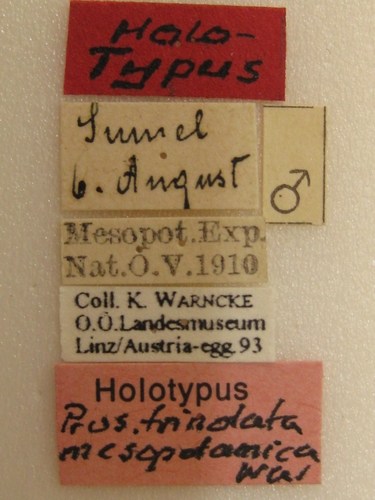 Holo-
Typus
Sumel
6. August
♂
Mesopot.Exp.
Nat.O.V.1910
Coll. K. WARNCKE
O.Ö.Landesmuseum
Linz/Austria-egg.93
Holotypus
Pros. trindata
mesopotamica
War